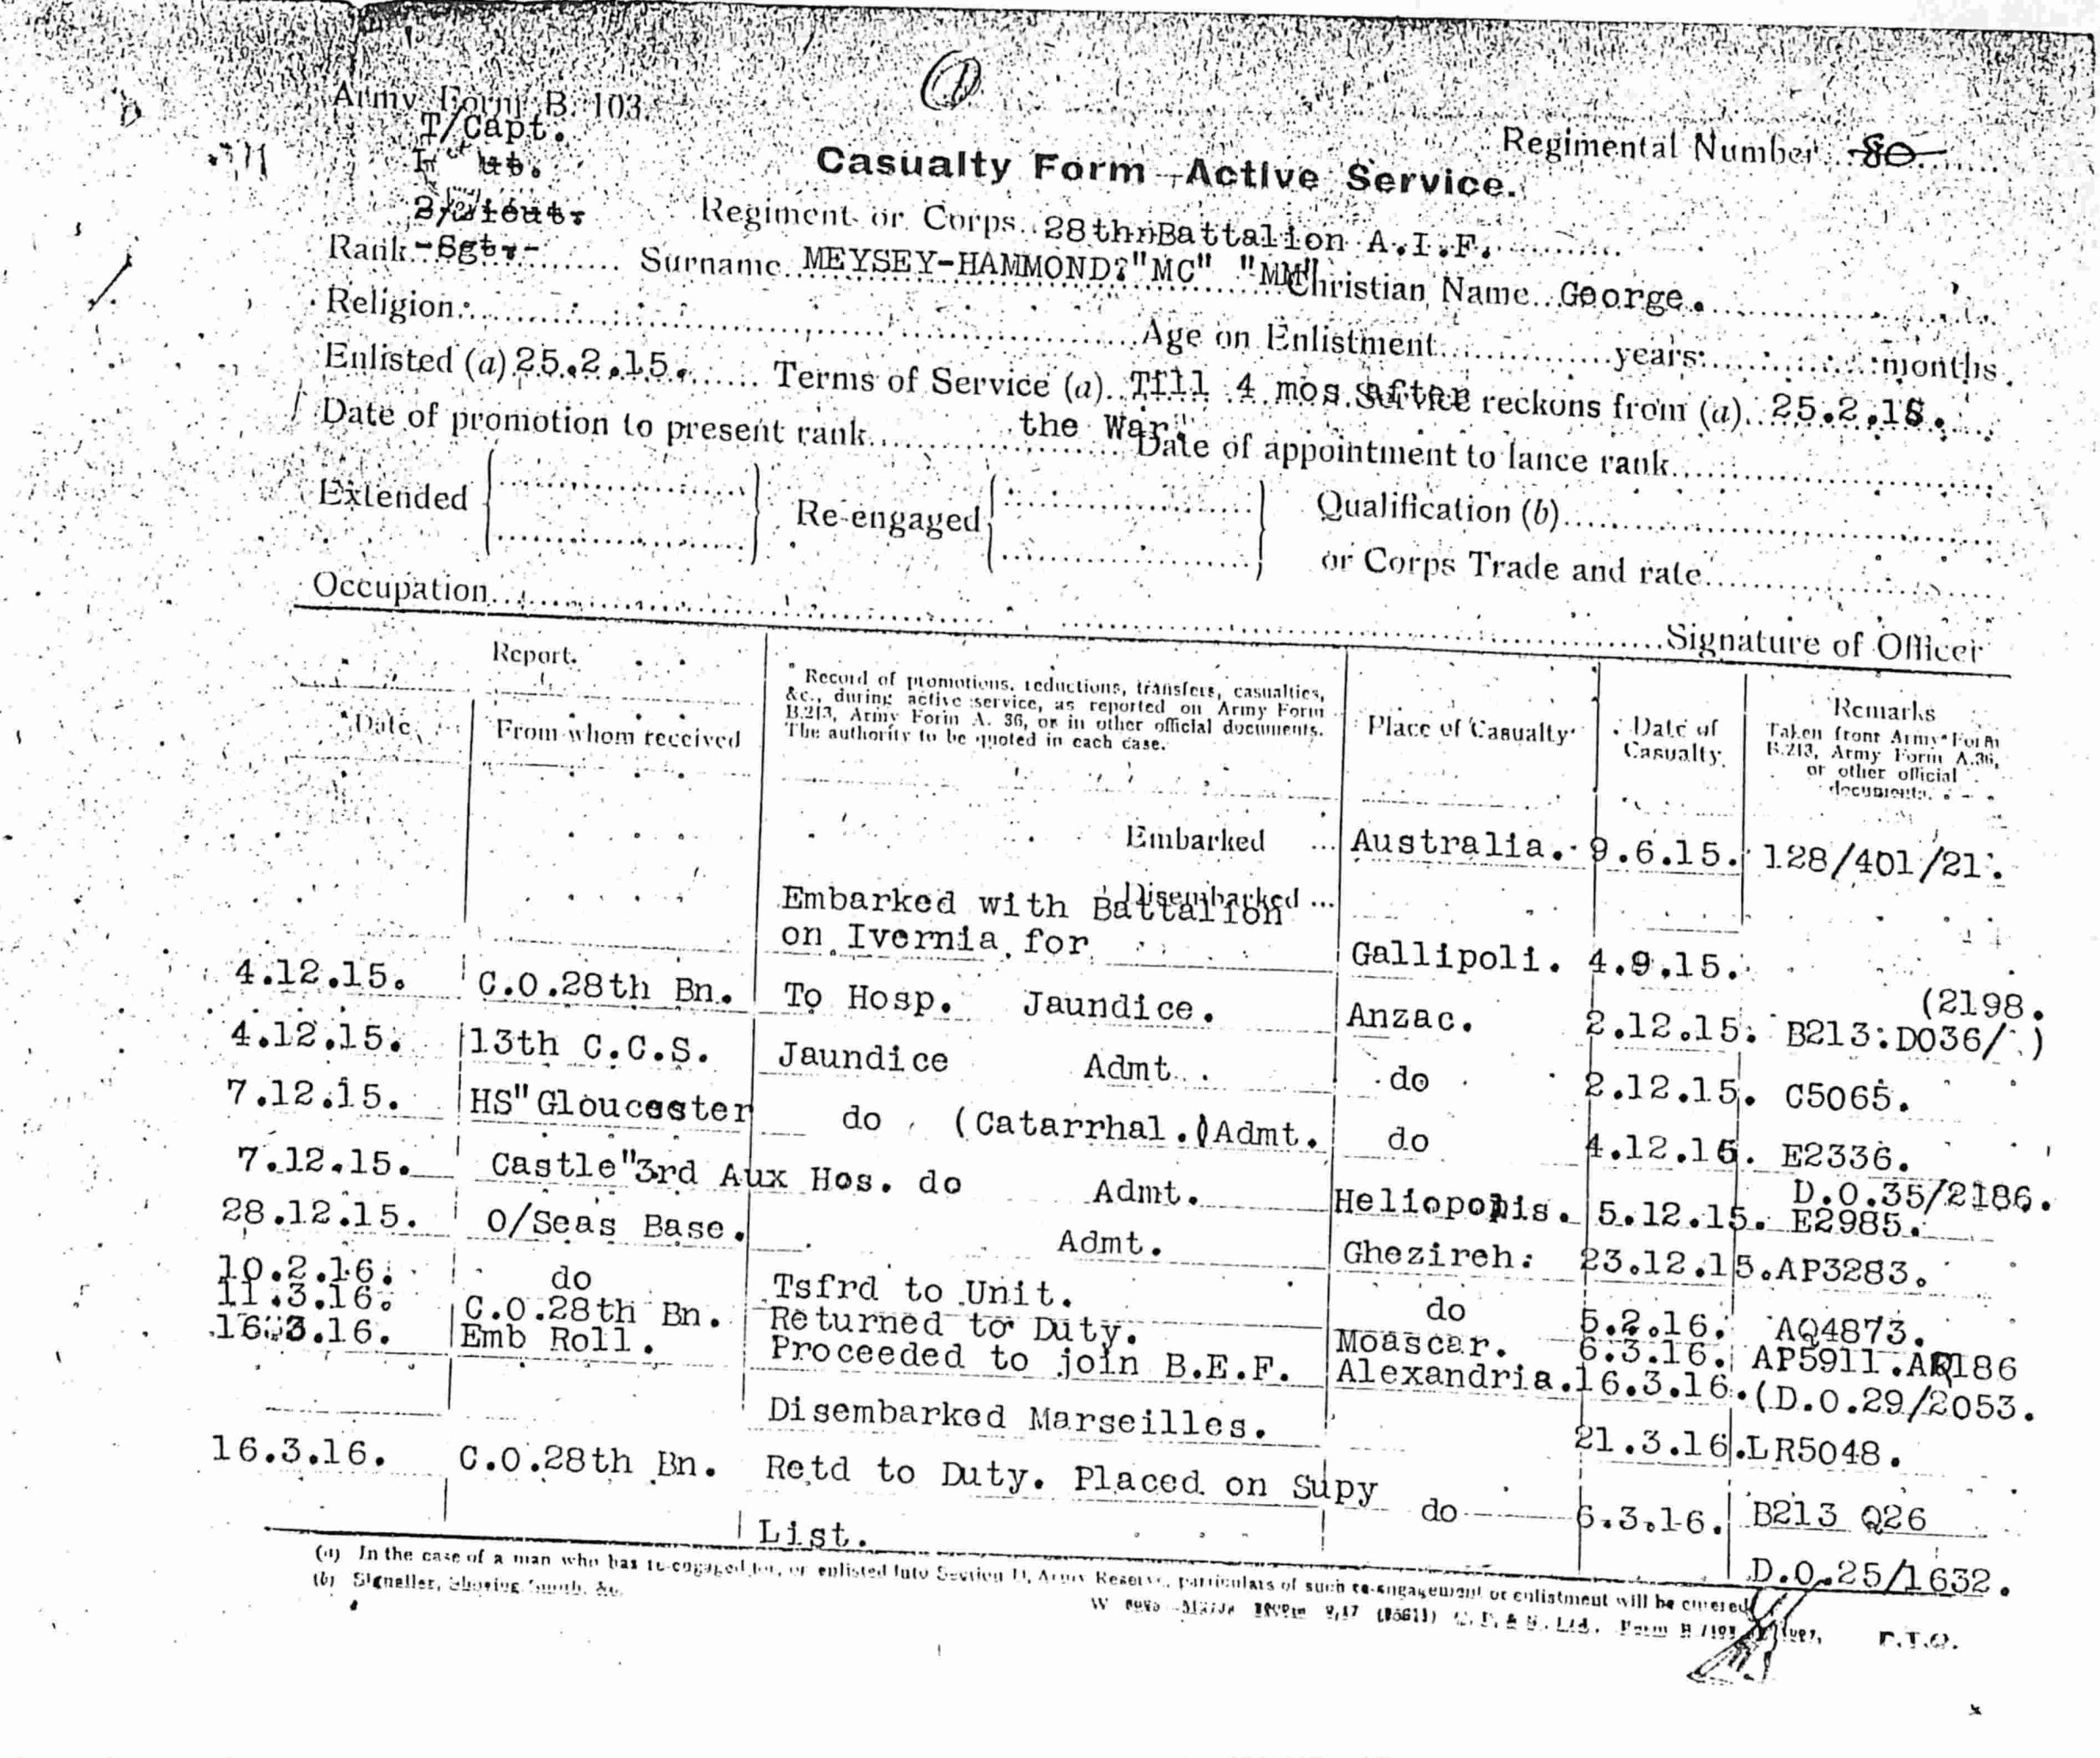 Army Form B. 103.
T/Capt.
Regimental Number 80
Casualty Form—Active Service.
2/Lieut.
Regiment or Corps 28th Battalion A.I.F.
Rank Sgt. Surname MEYSEY-HAMMOND "MC" "MM" Christian Name George.
Religion Age on Enlistment years months.
Enlisted (a) 25.2.15. Terms of Service (a) Till 4 mos after Service reckons from (a) 25.2.15.
the War.
Date of promotion to present rank Date of appointment to lance rank
Extended Re-engaged Qualification (b)
or Corps Trade and rate
Occupation Signature of Officer
Report.
Date From whom received
Record of promotions, reductions, transfers, casualties,
&c., during active service, as reported on Army Form
B.213, Army Form A. 36, or in other official documents.
The authority to be quoted in each case.
Place of Casualty
Date of
Casualty.
Remarks
Taken from Army Form
B.213, Army Form A.36,
or other official
documents.
Embarked ... Australia. 9.6.15. 128/401/21.
Disembarked ...
Embarked with Battalion
on Ivernia for Gallipoli. 4.9.15.
(2198.
4.12.15. C.O.28th Bn. To Hosp. Jaundice. Anzac. 2.12.15. B213:DO36/ )
4.12.15. 13th C.C.S. Jaundice Admt. do 2.12.15. C5065.
7.12.15. HS"Gloucester do (Catarrhal.) Admt. do 4.12.15. E2336.
D.O.35/2186.
7.12.15. Castle"3rd Aux Hos. do Admt. Heliopolis. 5.12.15. E2985.
28.12.15. O/Seas Base. Admt. Ghezireh: 23.12.15. AP3283.
10.2.16. do Tsfrd to Unit. do 5.2.16. AQ4873.
11.3.16. C.O.28th Bn. Returned to Duty. Moascar. 6.3.16. AP5911.AR186
16.3.16. Emb Roll. Proceeded to join B.E.F. Alexandria. 16.3.16. (D.O.29/2053.
Disembarked Marseilles. 21.3.16. LR5048.
16.3.16. C.O.28th Bn. Retd to Duty. Placed on Supy do 6.3.16. B213 Q26
List. D.O.25/1632.
(a) In the case of a man who has re-engaged for, or enlisted into Section D, Army Reserve, particulars of such re-engagement or enlistment will be entered
(b) Signaller, Shoeing Smith, &c.
P.T.O.